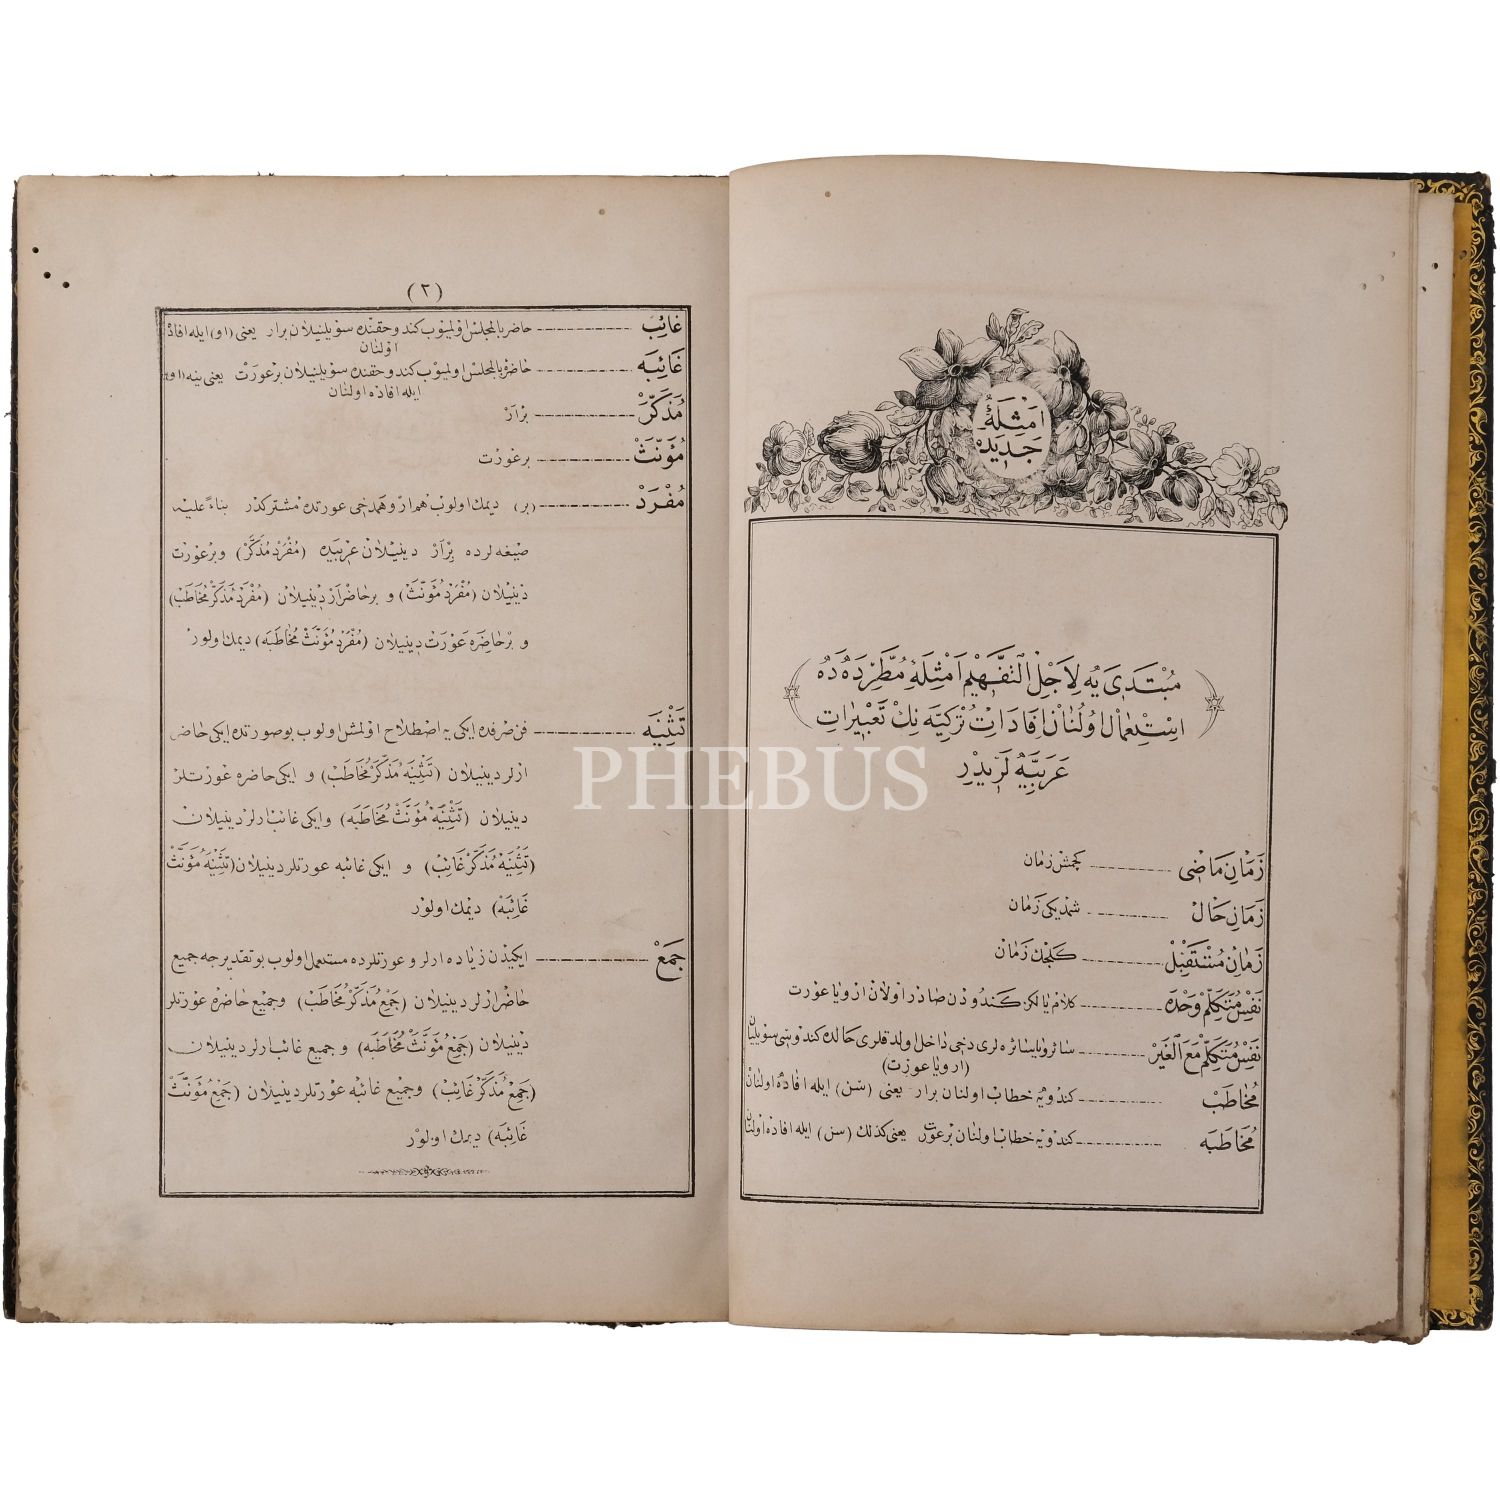 امثلهٔ
جدیده
مُبْتَدَیَ یه لِاَجْلِ التَّفْهِیْم اَمْثِلَهٔ مُطَّرِدَه دَه
اِسْتِعْمَال اولُنَانْ اِفَادَاتِ تُرْکِیَّه نِكْ تَعْبِیرَاتِ
عَرَبِیَّه لَرِیدِرْ
زَمَانِ مَاضِی کچمش زمان
زَمَانِ حَالْ شمدیکی زمان
زَمَانِ مُسْتَقْبِلْ کله جك زمان
نَفْسِ مُتَکَلِّمْ وَحْدَه کلام یالکز کندودن صادر اولان ار ویا عورت
نَفْسِ مُتَکَلِّمْ مَعَ الْغَیْر سائر ویا سائره لری دخی داخل اولدقلری حالده کندوسی سویلیان
(ار ویا عورت)
مُخَاطَبْ کندویه خطاب اولنان برار یعنی (سن) ایله افاده اولنان
مُخَاطَبَه کندویه خطاب اولنان برعورت یعنی کذلك (سن) ایله افاده اولنان
(٢)
غَائِبْ حاضر بالمجلس اولمیوب کندو حقنده سویلنیلان برار یعنی (او) ایله افاده
اولنان
غَائِبَه حاضر بالمجلس اولمیوب کندو حقنده سویلنیلان برعورت یعنی ینه (او)
ایله افاده اولنان
مُذَکَّرْ برار
مُؤَنَّثْ برعورت
مُفْرَدْ (بر) دیمك اولوب هم ار و هم دخی عورتده مشترکدر بناءً علیه
صیغه لرده برار دینیلان عربیده (مُفْرَدْ مُذَکَّرْ) و برعورت
دینیلان (مُفْرَدْ مُؤَنَّثْ) و برحاضر ار دینیلان (مُفْرَدْ مُذَکَّرْ مُخَاطَبْ)
و برحاضره عورت دینیلان (مُفْرَدْ مُؤَنَّثْ مُخَاطَبَه) دیمك اولور
تَثْنِیَه فن صرفده ایکی یه اصطلاح اولمش اولوب بو صورتده ایکی حاضر
ارلر دینیلان (تَثْنِیَه مُذَکَّرْ مُخَاطَبْ) و ایکی حاضره عورتلر
دینیلان (تَثْنِیَه مُؤَنَّثْ مُخَاطَبَه) و ایکی غائب ارلر دینیلان
(تَثْنِیَه مُذَکَّرْ غَائِبْ) و ایکی غائبه عورتلر دینیلان (تَثْنِیَه مُؤَنَّثْ
غَائِبَه) دیمك اولور
جَمِعْ ایکیدن زیاده ارلر و عورتلرده مستعمل اولوب بو تقدیرجه جمیع
حاضر ارلر دینیلان (جَمِعْ مُذَکَّرْ مُخَاطَبْ) و جمیع حاضره عورتلر
دینیلان (جَمِعْ مُؤَنَّثْ مُخَاطَبَه) و جمیع غائب ارلر دینیلان
(جَمِعْ مُذَکَّرْ غَائِبْ) و جمیع غائبه عورتلر دینیلان (جَمِعْ مُؤَنَّثْ
غَائِبَه) دیمك اولور
PHEBUS